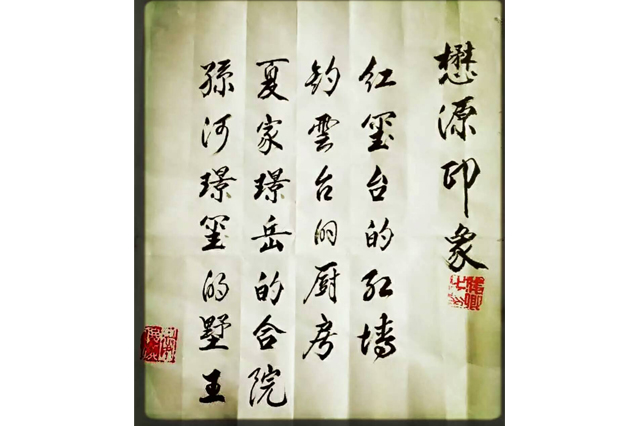 懋源印象
红玺台的红墙
钓雲台的厨房
夏家璟岳的合院
孫河璟玺的墅王